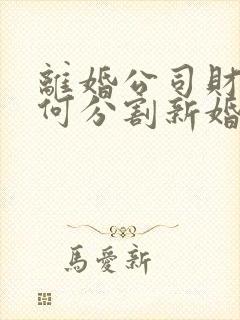 離婚公司財
何分割新婚
馬愛新